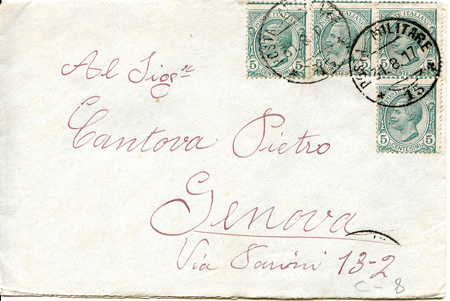 POSTA MILITARE
. 8. 17
* 75 *
5 5 5 5
5 5
CENTESIMI
Al Sigr
Cantova Pietro
Genova
Via 13-2
C-8